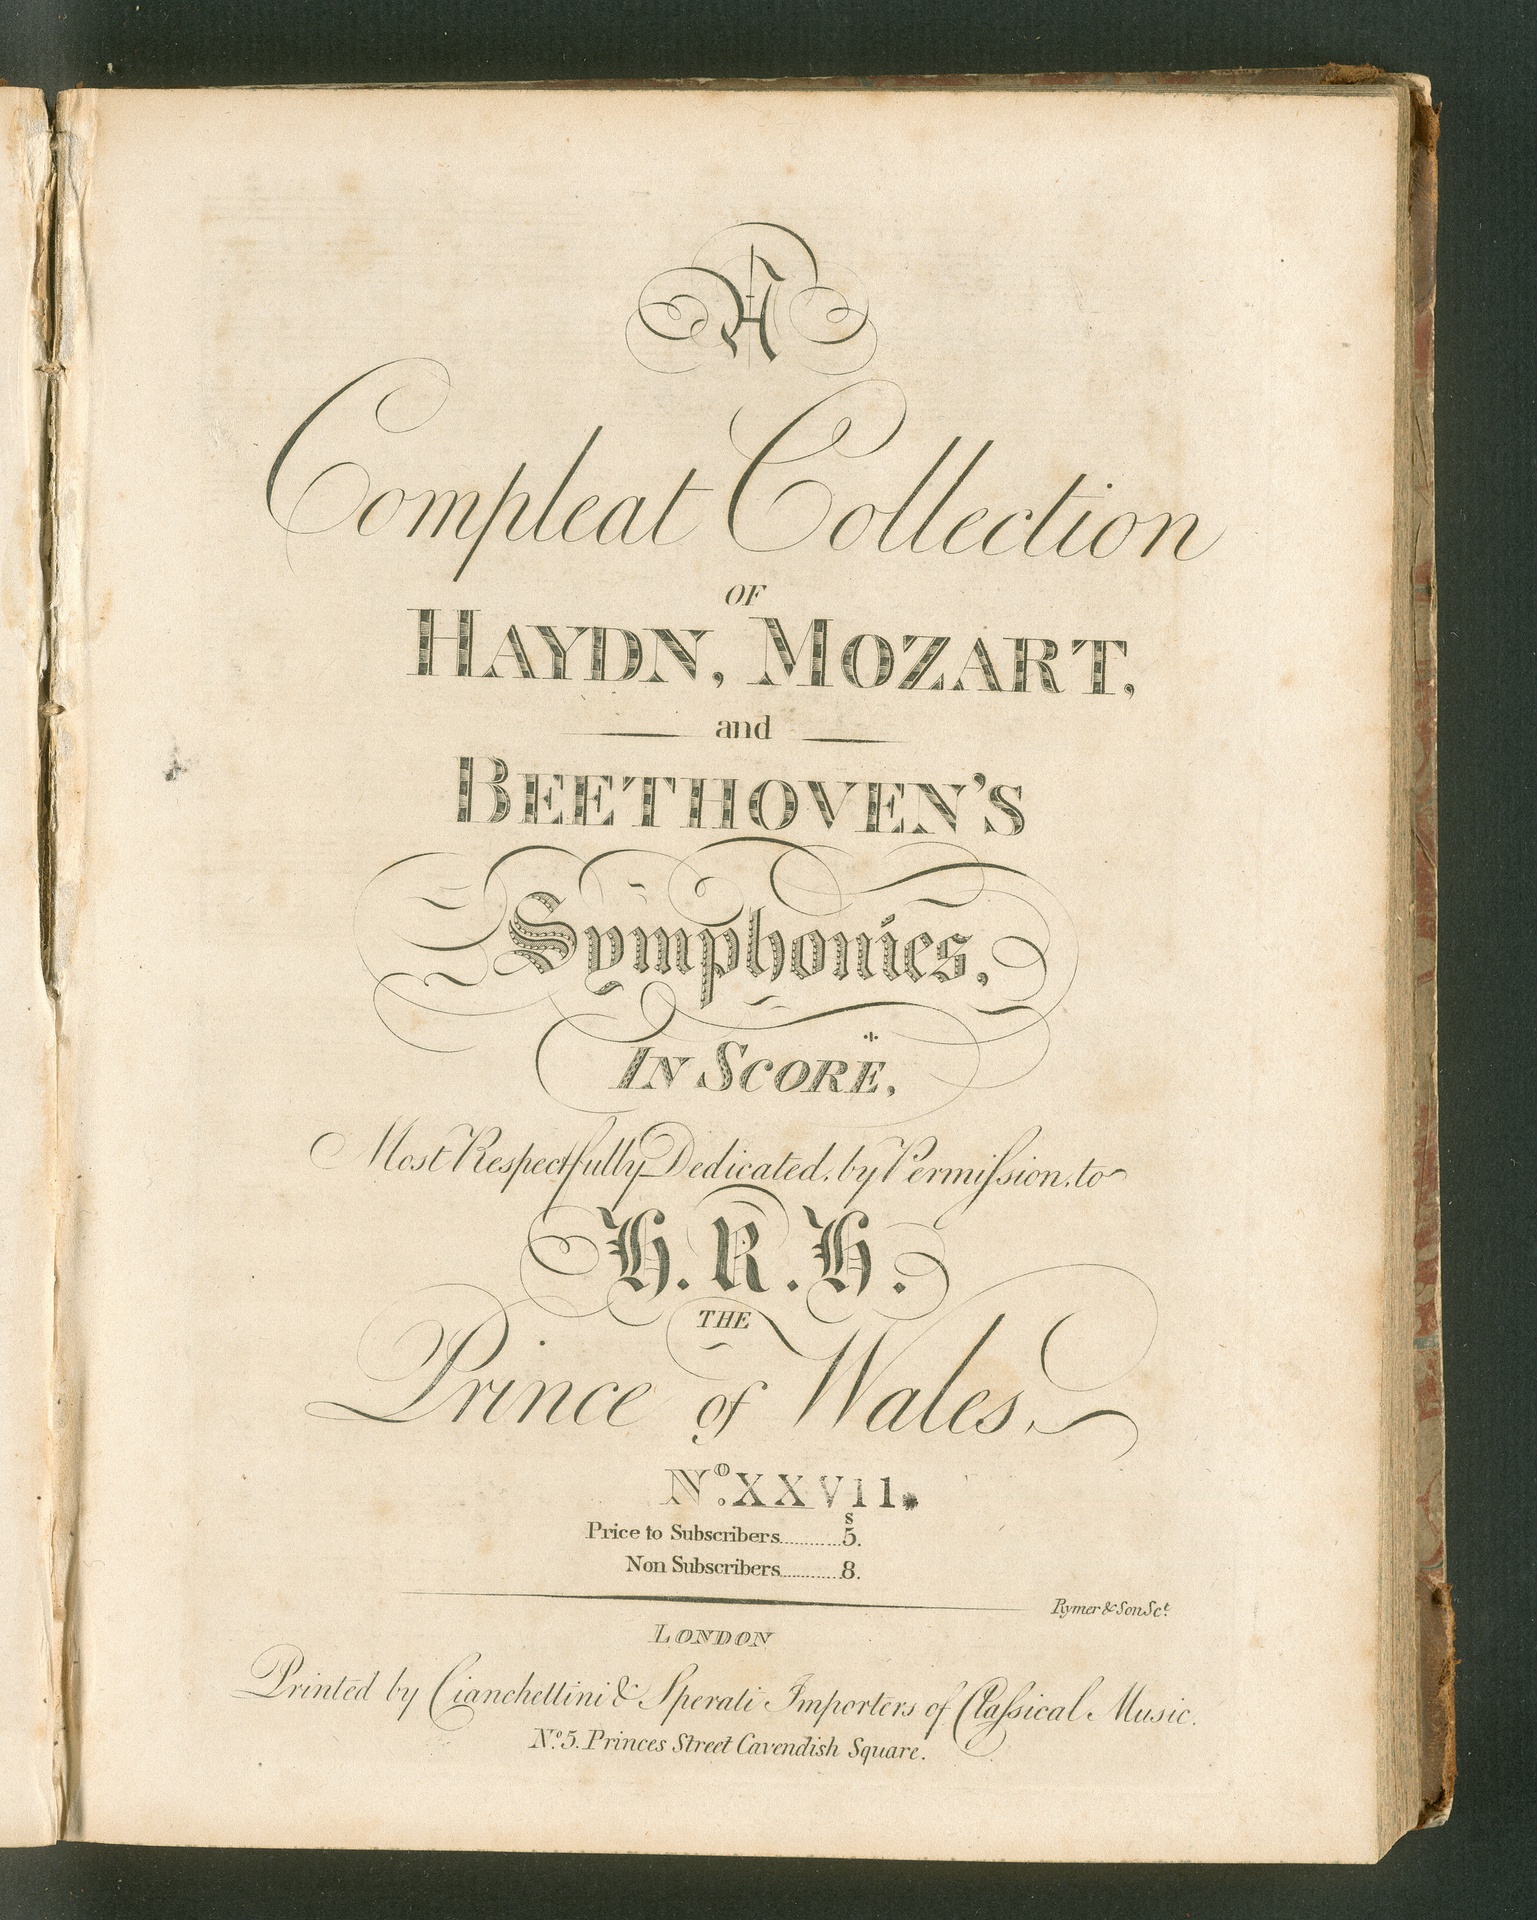 A
Compleat Collection
OF
HAYDN, MOZART,
and
BEETHOVEN'S
Symphonies,
IN SCORE,
Most Respectfully Dedicated, by Permiſsion, to
H. R. H.
THE
Prince of Wales,
No. XXVII.
s
Price to Subscribers............5.
Non Subscribers............8.
Rymer & Son Sct.
LONDON
Printed by Cianchettini & Sperati Importers of Claſsical Music.
No. 5. Princes Street Cavendish Square.